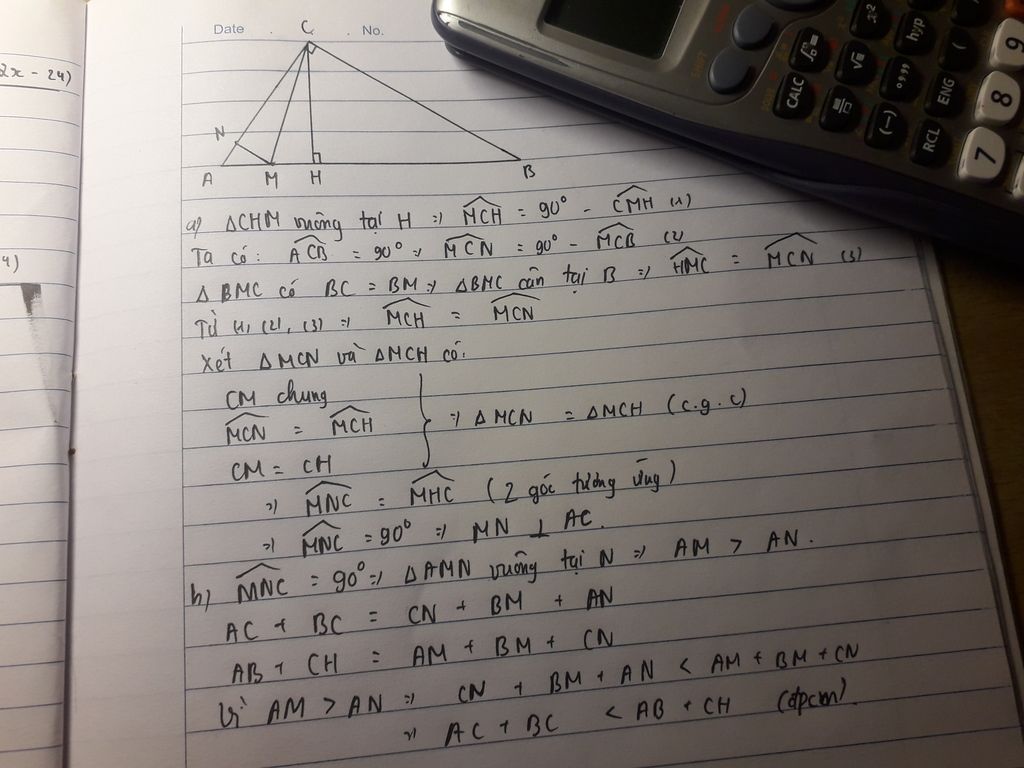 2x - 24)
4)
Date . No.
C
N
A M H B
a) ΔCHM vuông tại H => \widehat{MCH} = 90° - \widehat{CMH} (1)
Ta có: \widehat{ACB} = 90° => \widehat{MCN} = 90° - \widehat{MCB} (2)
Δ BMC có BC = BM => ΔBMC cân tại B => \widehat{HMC} = \widehat{MCN} (3)
Từ (1), (2), (3) => \widehat{MCH} = \widehat{MCN}
Xét ΔMCN và ΔMCH có:
CM chung
\widehat{MCN} = \widehat{MCH}
CM = CH
=> ΔMCN = ΔMCH (c.g.c)
=> \widehat{MNC} = \widehat{MHC} (2 góc tương ứng)
=> \widehat{MNC} = 90° => MN ⊥ AC.
b) \widehat{MNC} = 90° => ΔAMN vuông tại N => AM > AN.
AC + BC = CN + BM + AN
AB + CH = AM + BM + CN
Vì AM > AN => CN + BM + AN < AM + BM + CN
=> AC + BC < AB + CH (đpcm).
CALC ∫ x² hyp (
√ °,,, ENG 9
(-) RCL 8
7